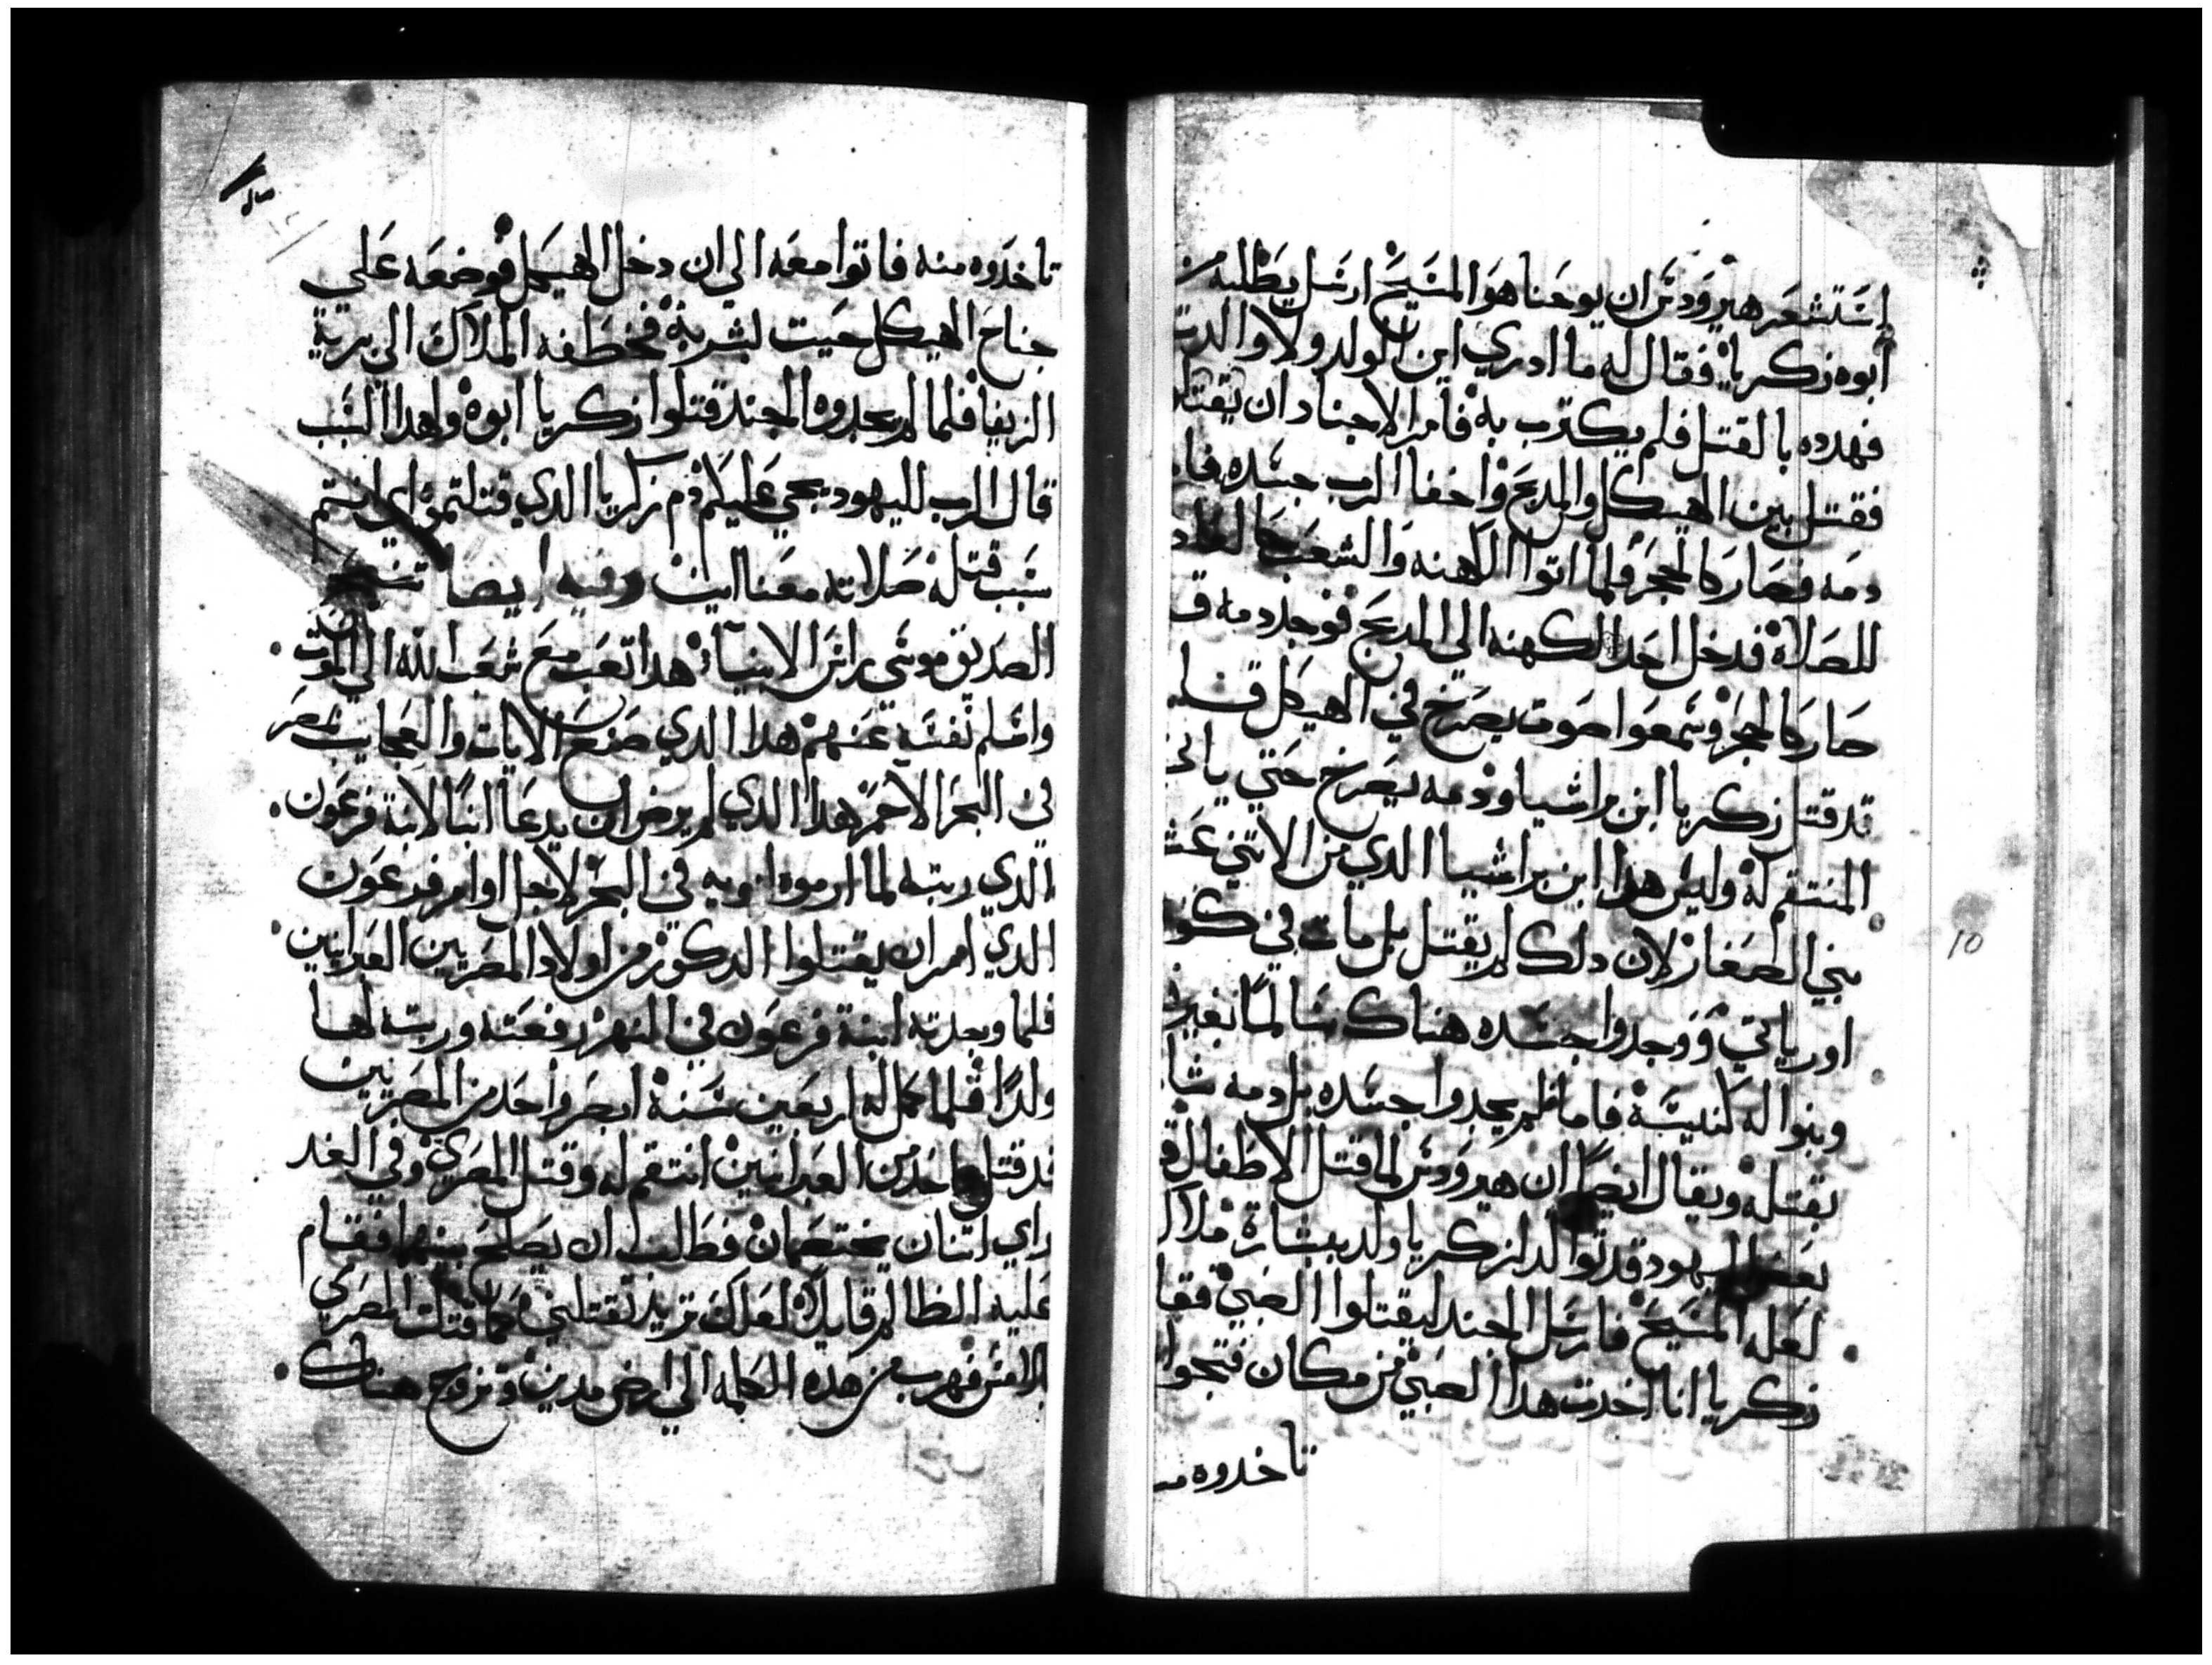 استشعر هيرودس ان يوحنا هو المسيح ارسل يطلبه من
ابوه زكريا فقال له ما ادري اين الولد ولا والدته
فهدده بالقتل فلم يكترب به فامر الاجناد ان يقتلوه
فقتل بين الهيكل والمدبح واخفا الرب جسده فاما
دمه فصار كالحجر فلما اتوا الكهنه والشعب كالعاده
للصلاة فدخل احد الكهنه الي المدبح فوجد دمه قد
صار كالحجر وسمعوا صوت يصرخ في الهيكل قايلا
قد قتل زكريا ابن براشيا ودمه يصرخ حتي ياتي
المنتقم له وليس هدا ابن براشيا الدي من الاتني عشر
نبي الصغار لان دلك لم يقتل بل مات في كنو
اورياتي ووجدوا جسده هناك سالماً بغير
وبنوا له كنيسة فاما لم يجدوا جسده بل دمه
بقتله ويقال ايضاً ان هيرودس لما قتل الاطفال
بعض اليهود قد تولد لزكريا ولد ببشارة ملاك
لعله المسيح فارسل الجند ليقتلوا الصبي فقال
زكريا انا اخدت هدا الصبي من مكان فتجوا
تاخدوه منه
10
تاخدوه منه فاتوا معه الي ان دخل الهيكل فوضعه علي
جناح الهيكل حيت لبشر به فخطفه الملاك الي برية
الزيفا فلما لم يجدوه الجند قتلوا زكريا ابوه ولهدا السبب
قال الرب لليهود يجي عليكم دم زكريا الدي قتلتموه اي انتم
سبب قتله صلاته معنا امين وفيه ايضا تنيح
الصديق موسي راس الانبياء هدا تعب مع شعب الله الي الموت
واسلم نفسه عنهم هدا الدي صنع الايات والعجايب بمصر
في البحر الاحمر هدا الدي لم يرض ان يدعا ابنًا لابنة فرعون
الدي ربته لما ارموه ابويه في البحر لاجل اوامر فرعون
الدي امر ان يقتلوا الدكور من اولاد المصريين العبرانين
فلما وجدته ابنة فرعون في النهر رفعته وربته لها
ولدًا فلما كمل له اربعين سنة ابصر واحد من المصريين
قد قتل واحد من العبرانين انتقم له وقتل المصري وفي الغد
راي اتنان يختصمان فطلب ان يصلح بينهما فقام
عليه الظالم قايلاً لعلك تريد تقتلني كما قتلت المصري
بالامس فهرب من هده الكلمه الي ارض مدين وتزوج هناك